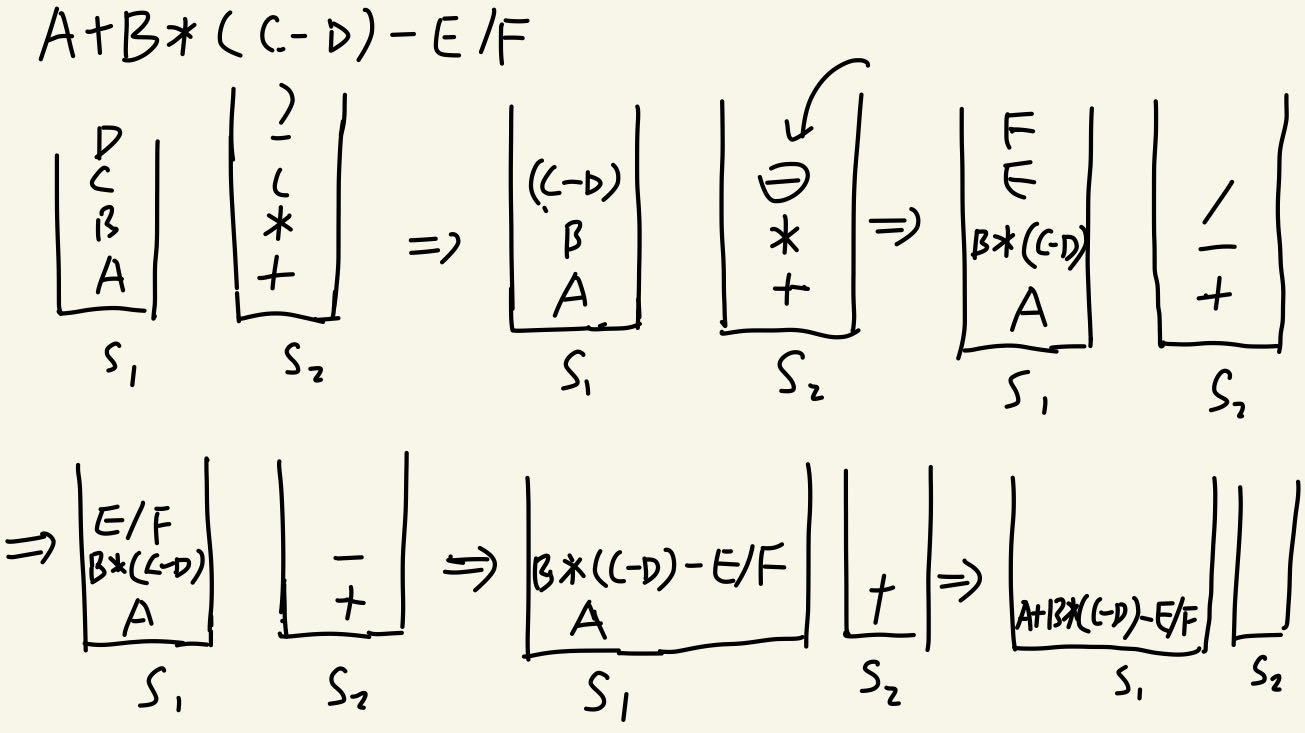 A+B*(C-D)-E/F
D
C
B
A
S1
)
-
(
*
+
S2
⇒
(C-D)
B
A
S1
-
*
+
S2
⇒
F
E
B*(C-D)
A
S1
/
-
+
S2
⇒
E/F
B*(C-D)
A
S1
-
+
S2
⇒
B*(C-D)-E/F
A
S1
+
S2
⇒
A+B*(C-D)-E/F
S1
S2